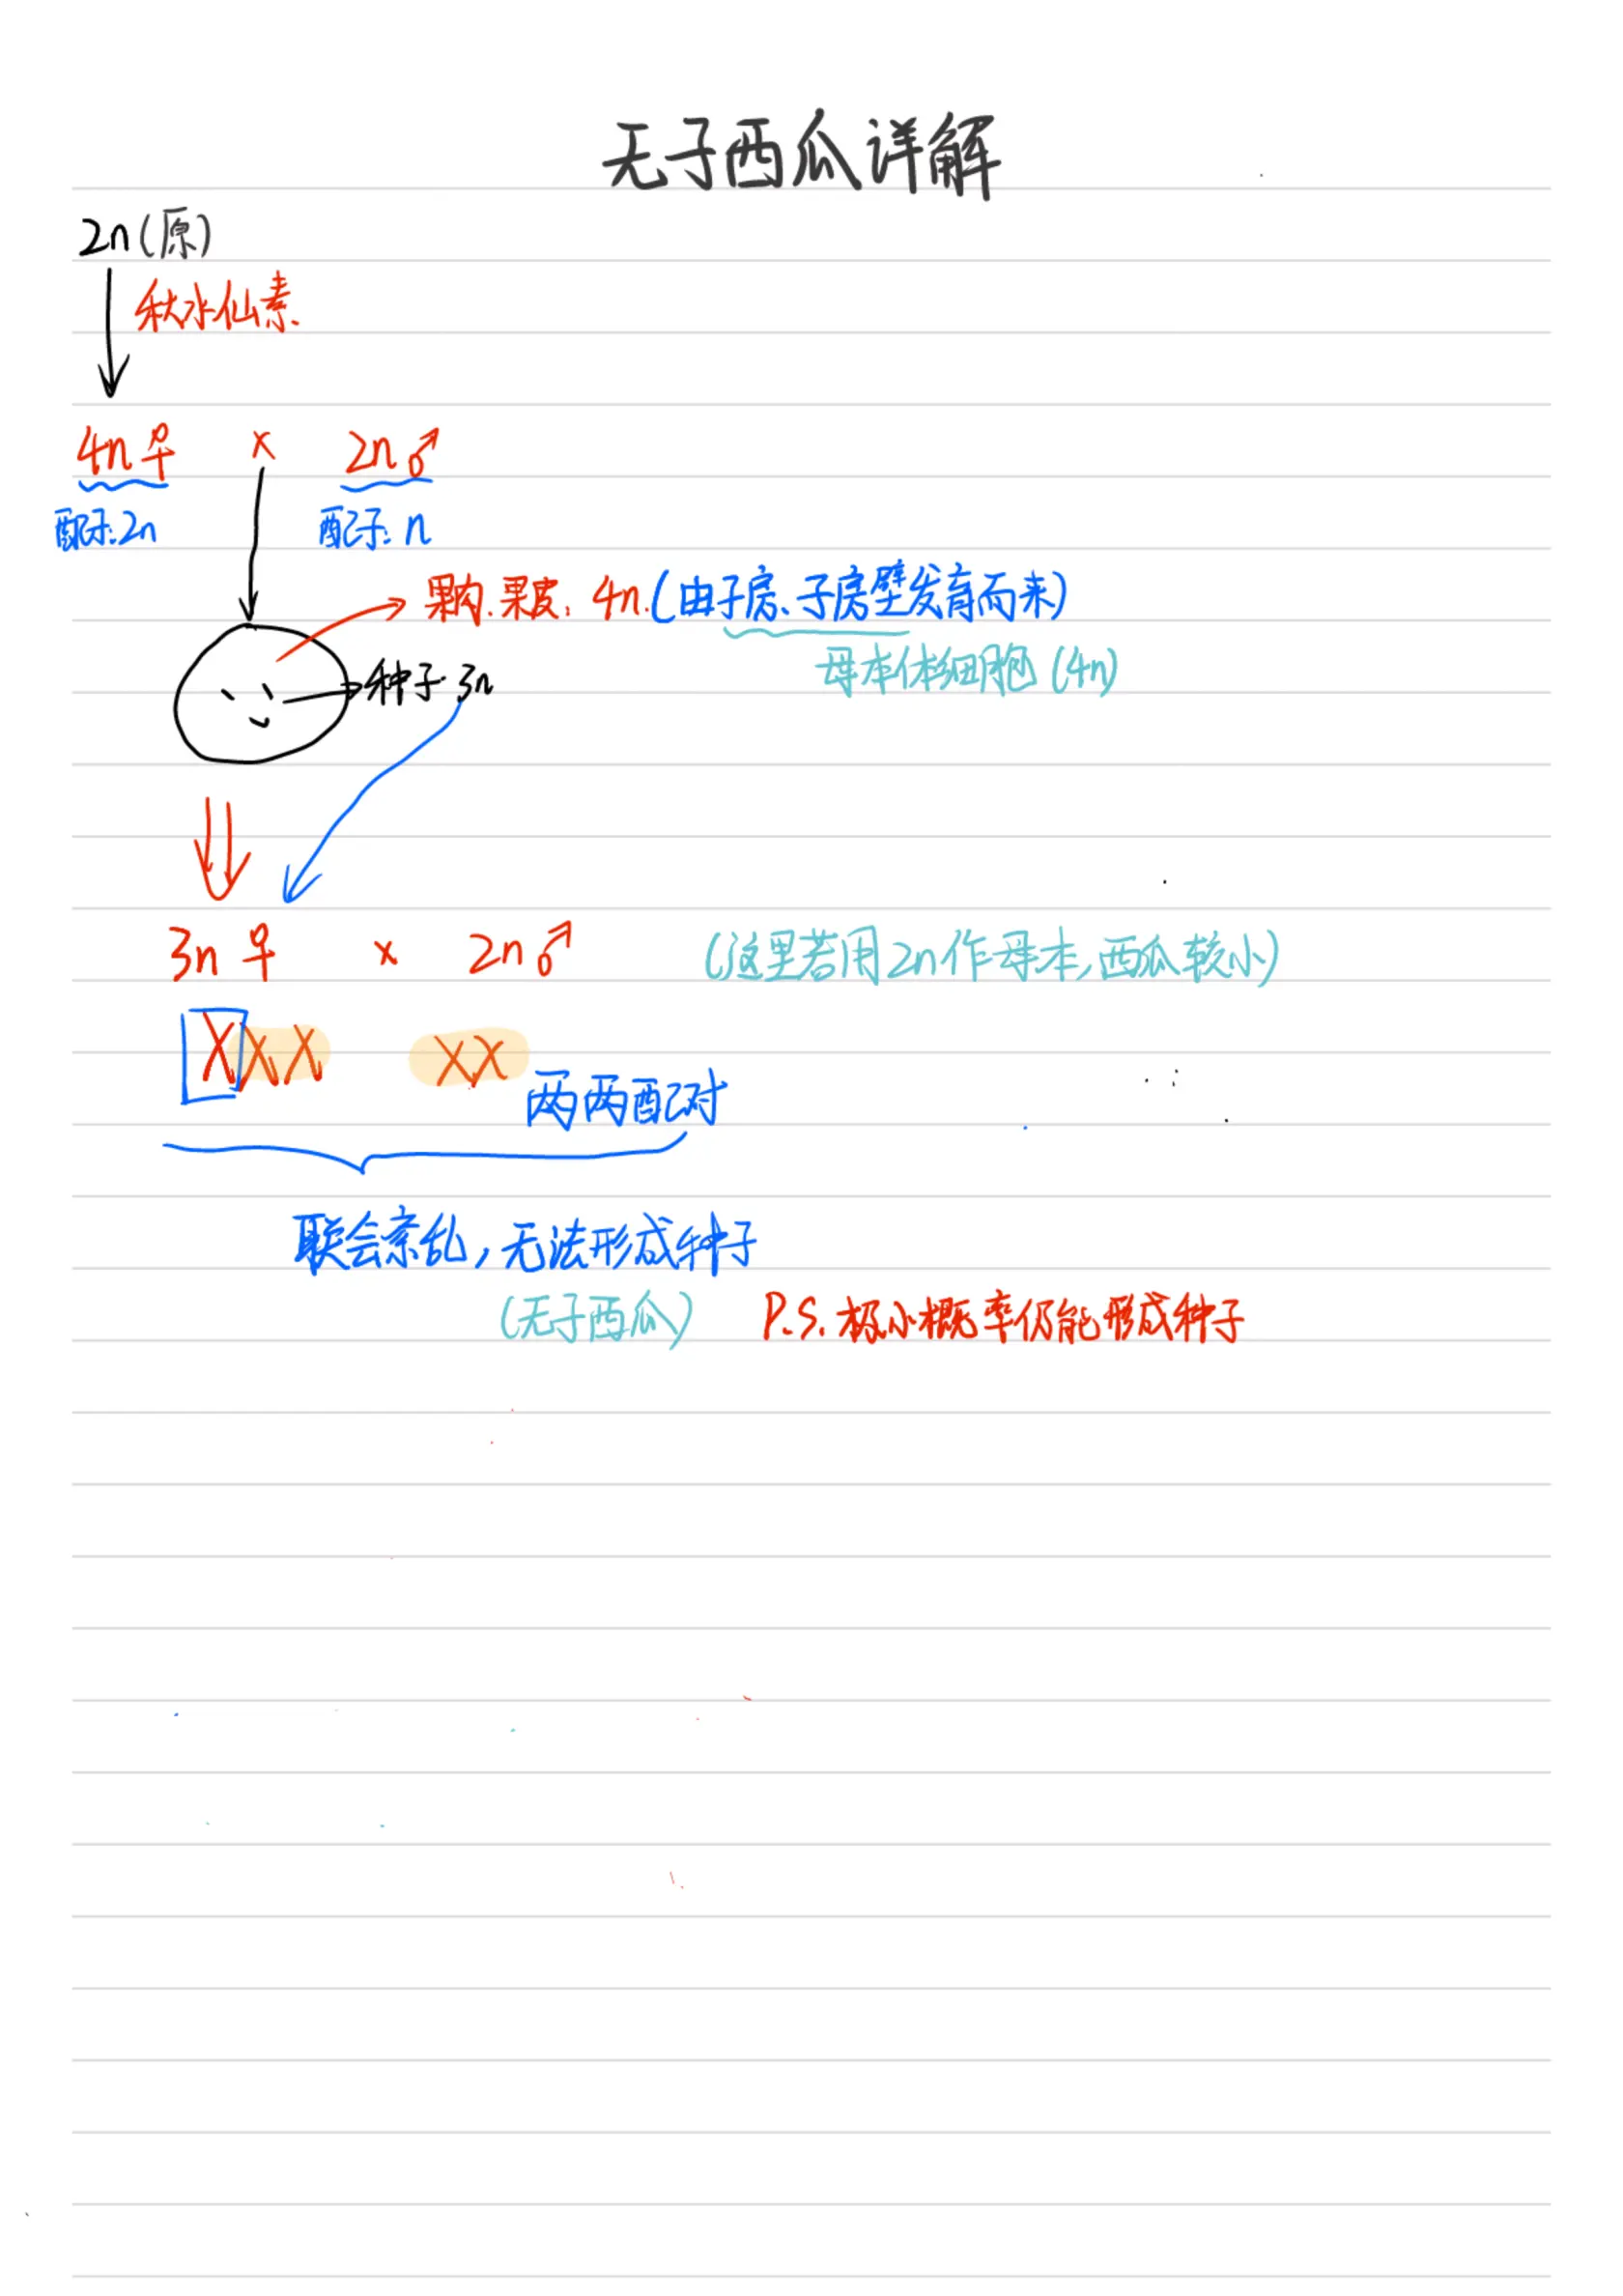 无子西瓜详解
2n(原)
秋水仙素.
4n♀ × 2n♂
配子:2n 配子: n
果肉.果皮: 4n.(由子房、子房壁发育而来)
母本体细胞(4n)
种子:3n
3n♀ × 2n♂ (这里若用2n作母本,西瓜较小)
XXX XX
两两配对
联会紊乱,无法形成种子
(无子西瓜) P.S.极小概率仍能形成种子